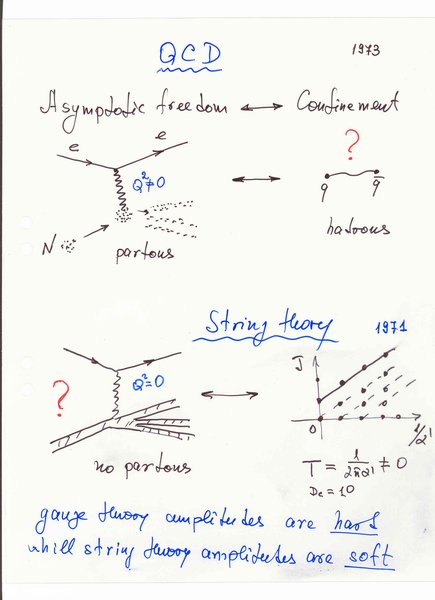 QCD 1973
Asymptotic freedom ↔ Confinement
e e
?
Q²≠0
q q̄
N
partons
hadrons
String theory 1971
?
Q²=0
J
0
1/α'
no partons
T = 1/2πα' ≠ 0
Dc = 10
gauge theory amplitudes are hard
whill string theory amplitudes are soft